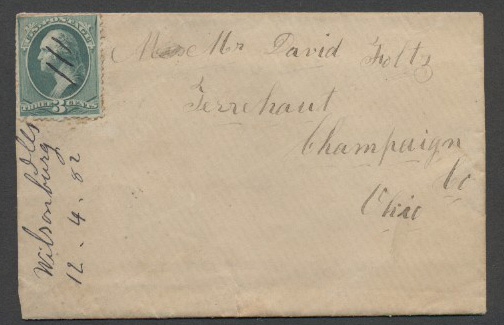 U.S. POSTAGE
THREE 3 CENTS
Mr David Folts
Terrehaut
Champaign
Co
Ohio
Wilsonburg Ills
12 . 4 . 82